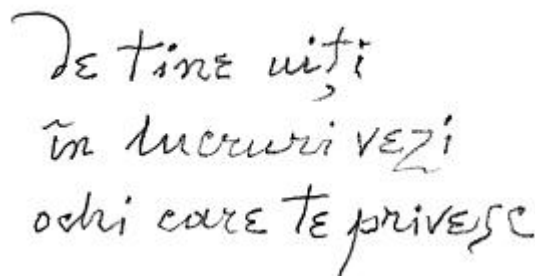 De tine uiți
în lucruri vezi
ochi care te privesc